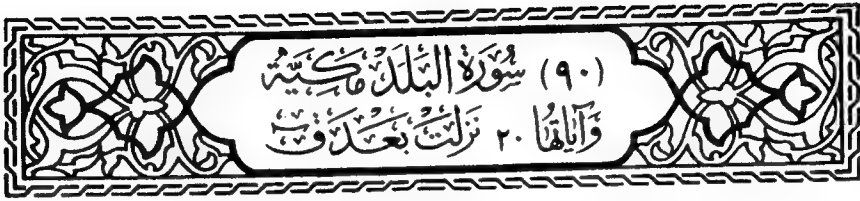 (٩٠) سُورَةُ البَلَدْ مَكِيَّة
وَآيَاتُهَا ٢٠ نَزَلَتْ بَعْدَ قَ